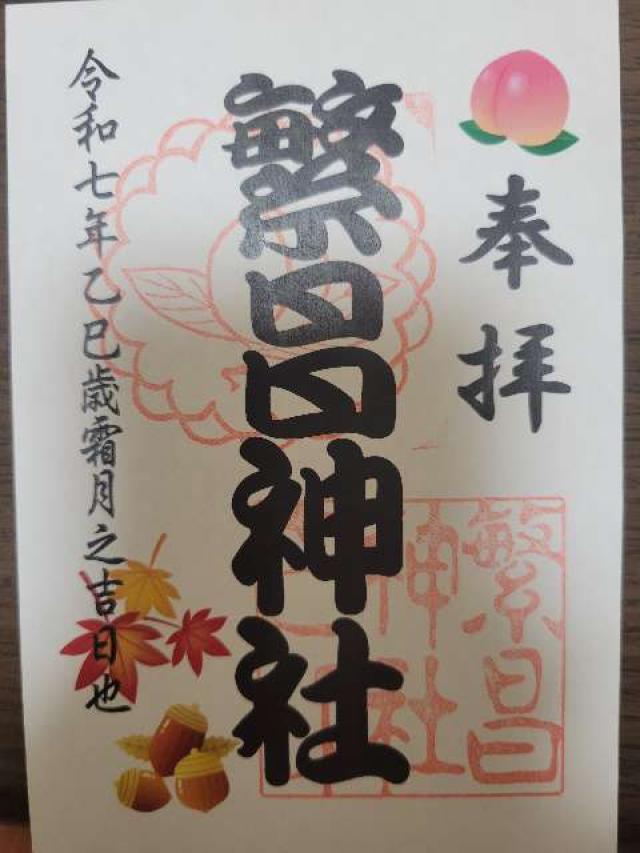 奉拝
繁昌神社
令和七年乙巳歳霜月之吉日也
繁昌
神社